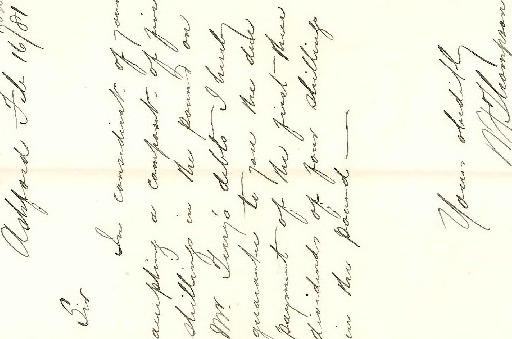 Ashford Feb 16/81
Sir
In considn. of your
accepting a composn. of five
shillings in the pound on
Mr. debts I hereby
guarantee to you the due
payment of the first three
dividends of four shillings
in the pound —
Yours obedtly
Thompson